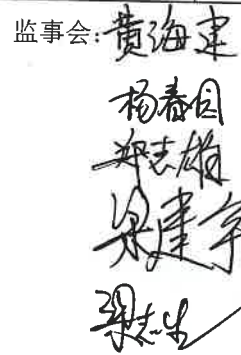 监事会:黄海建
杨春国
郑志雄
梁建宇
梁志生